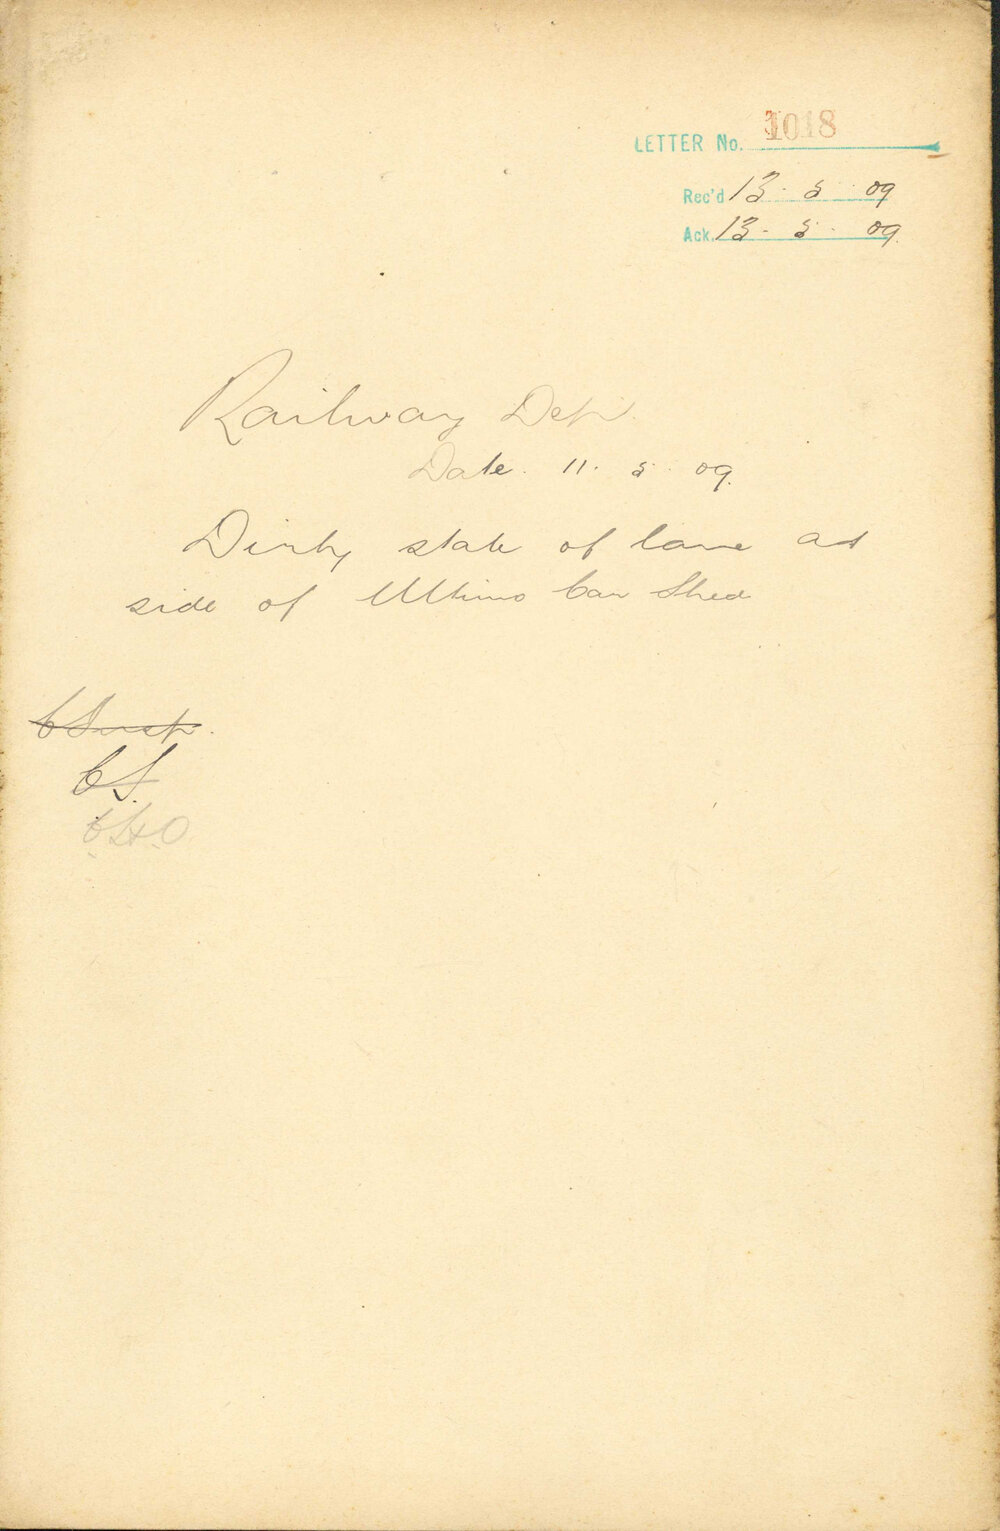 LETTER No. 1018
Rec'd 13. 5. 09
Ack. 13. 5. 09.
Railway Dept.
Date. 11. 5. 09.
Dirty state of lane at
side of Ultimo Car Shed
C S